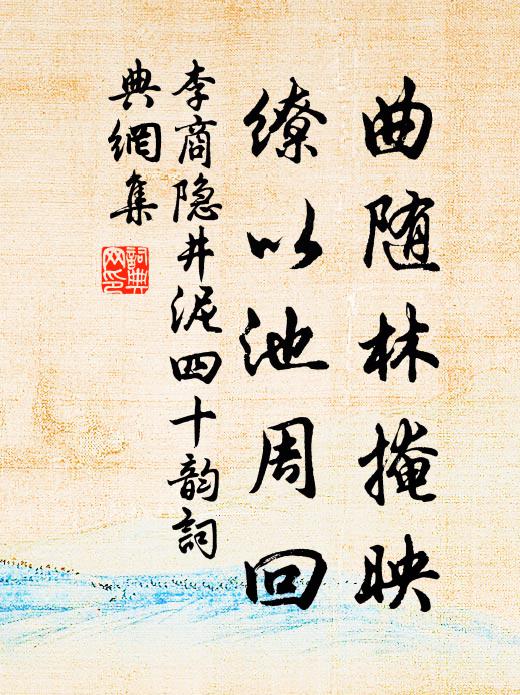 曲随林掩映
缭以池周回
李商隐井泥四十韵詞
典網集
詞典
网印